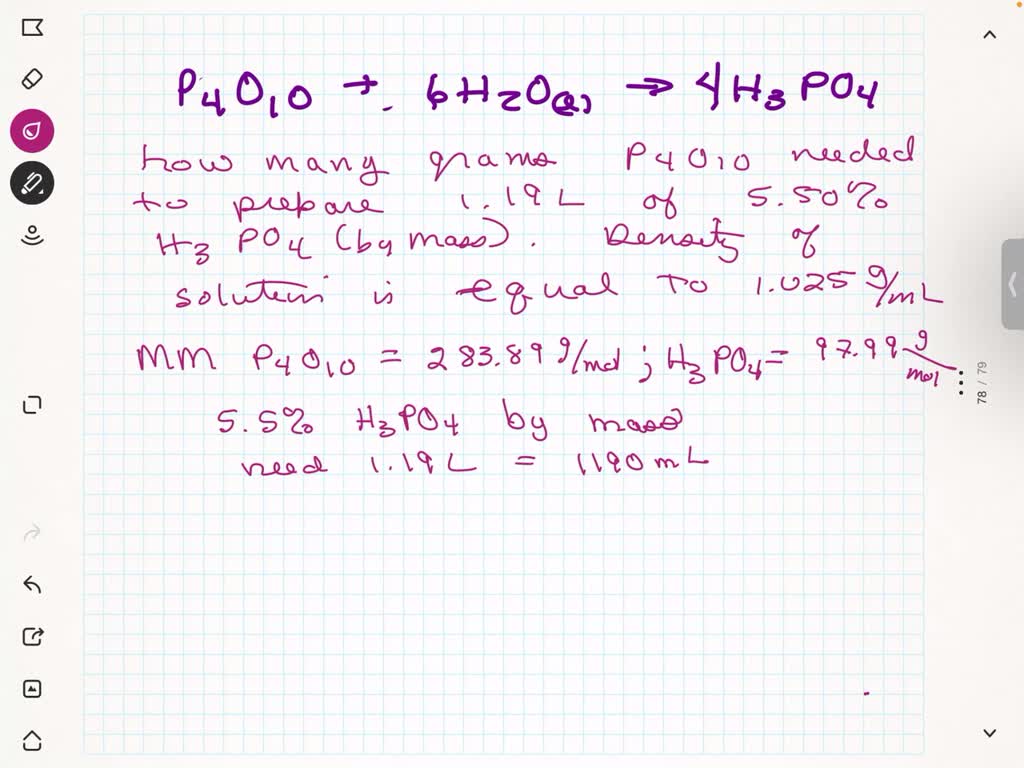 P4O10 + 6H2O(l) → 4H3PO4
how many grams P4O10 needed
to prepare 1.19L of 5.50%
H3PO4 (by mass). Density of
solution is equal to 1.025 g/mL
MM P4O10 = 283.89 g/mol ; H3PO4 = 97.99 g/mol
5.5% H3PO4 by mass
need 1.19L = 1190 mL
78 / 79